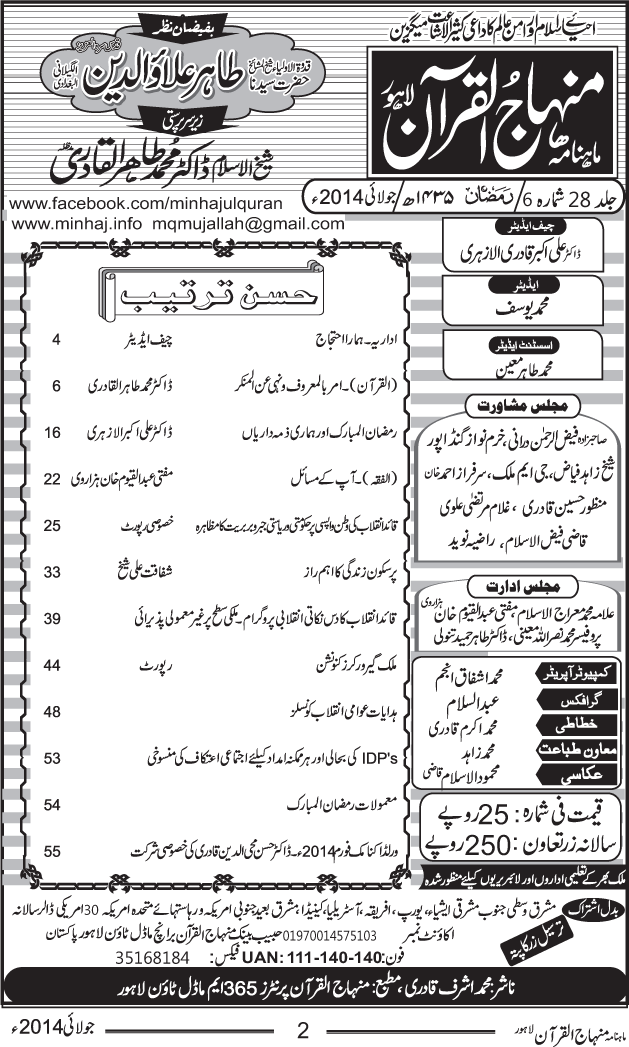 احیائے اسلام اور امن عالم کا داعی کثیر الاشاعت میگزین
ماہنامہ منہاج القرآن لاہور
بفیضان نظر
قدوۃ الاولیاء شیخ المشائخ
حضرت سیدنا طاہر علاؤالدین الگیلانی البغدادی
زیر سرپرستی
شیخ الاسلام ڈاکٹر محمد طاہر القادری
جلد 28 شمارہ 6 / رمضان ۱۴۳۵ھ / جولائی 2014ء
www.facebook.com/minhajulquran
www.minhaj.info mqmujallah@gmail.com
چیف ایڈیٹر
ڈاکٹر علی اکبر قادری الازہری
ایڈیٹر
محمد یوسف
اسسٹنٹ ایڈیٹر
محمد طاہر معین
مجلس مشاورت
صاحبزادہ فیض الرحمن درانی، خرم نواز گنڈاپور
شیخ زاہد فیاض، جی ایم ملک، سرفراز احمد خان
منظور حسین قادری، غلام مرتضیٰ علوی
قاضی فیض الاسلام، راضیہ نوید
مجلس ادارت
علامہ محمد معراج الاسلام، مفتی عبدالقیوم خان ہزاروی
پروفیسر محمد نصراللہ معینی، ڈاکٹر طاہر حمید تنولی
کمپیوٹر آپریٹر محمد اشفاق انجم
گرافکس عبدالسلام
خطاطی محمد اکرم قادری
معاون طباعت محمد زاہد
عکاسی محمود الاسلام قاضی
قیمت فی شمارہ: 25 روپے
سالانہ زر تعاون: 250 روپے
ملک بھر کے تعلیمی اداروں اور لائبریریوں کیلئے منظور شدہ
حسن ترتیب
اداریہ۔ ہمارا احتجاج چیف ایڈیٹر 4
(القرآن)۔ امر بالمعروف و نہی عن المنکر ڈاکٹر محمد طاہر القادری 6
رمضان المبارک اور ہماری ذمہ داریاں ڈاکٹر علی اکبر الازہری 16
(الفقہ)۔ آپ کے مسائل مفتی عبدالقیوم خان ہزاروی 22
قائد انقلاب کی وطن واپسی پر حکومتی و ریاستی جبر و بربریت کا مظاہرہ خصوصی رپورٹ 25
پرسکون زندگی کا اہم راز شفاقت علی شیخ 33
قائد انقلاب کا دس نکاتی انقلابی پروگرام۔ ملکی سطح پر غیر معمولی پذیرائی 39
ملک گیر ورکرز کنونشن رپورٹ 44
ہدایات عوامی انقلاب کونسلز 48
IDP's کی بحالی اور ہر ممکنہ امداد کیلئے اجتماعی اعتکاف کی منسوخی 53
معمولات رمضان المبارک 54
ورلڈ اکنامک فورم 2014ء۔ ڈاکٹر حسن محی الدین قادری کی خصوصی شرکت 55
بدل اشتراک مشرق وسطی جنوب مشرقی ایشیاء، یورپ، افریقہ، آسٹریلیا، کینیڈا، مشرق بعید جنوبی امریکہ و ریاستہائے متحدہ امریکہ 30 امریکی ڈالر سالانہ
ترسیل زر کا پتہ اکاؤنٹ نمبر 01970014575103 حبیب بینک منہاج القرآن برانچ ماڈل ٹاؤن لاہور پاکستان
فون: UAN: 111-140-140 فیکس: 35168184
ناشر: محمد اشرف قادری، مطبع: منہاج القرآن پرنٹرز 365 ایم ماڈل ٹاؤن لاہور
ماہنامہ منہاج القرآن لاہور 2 جولائی 2014ء